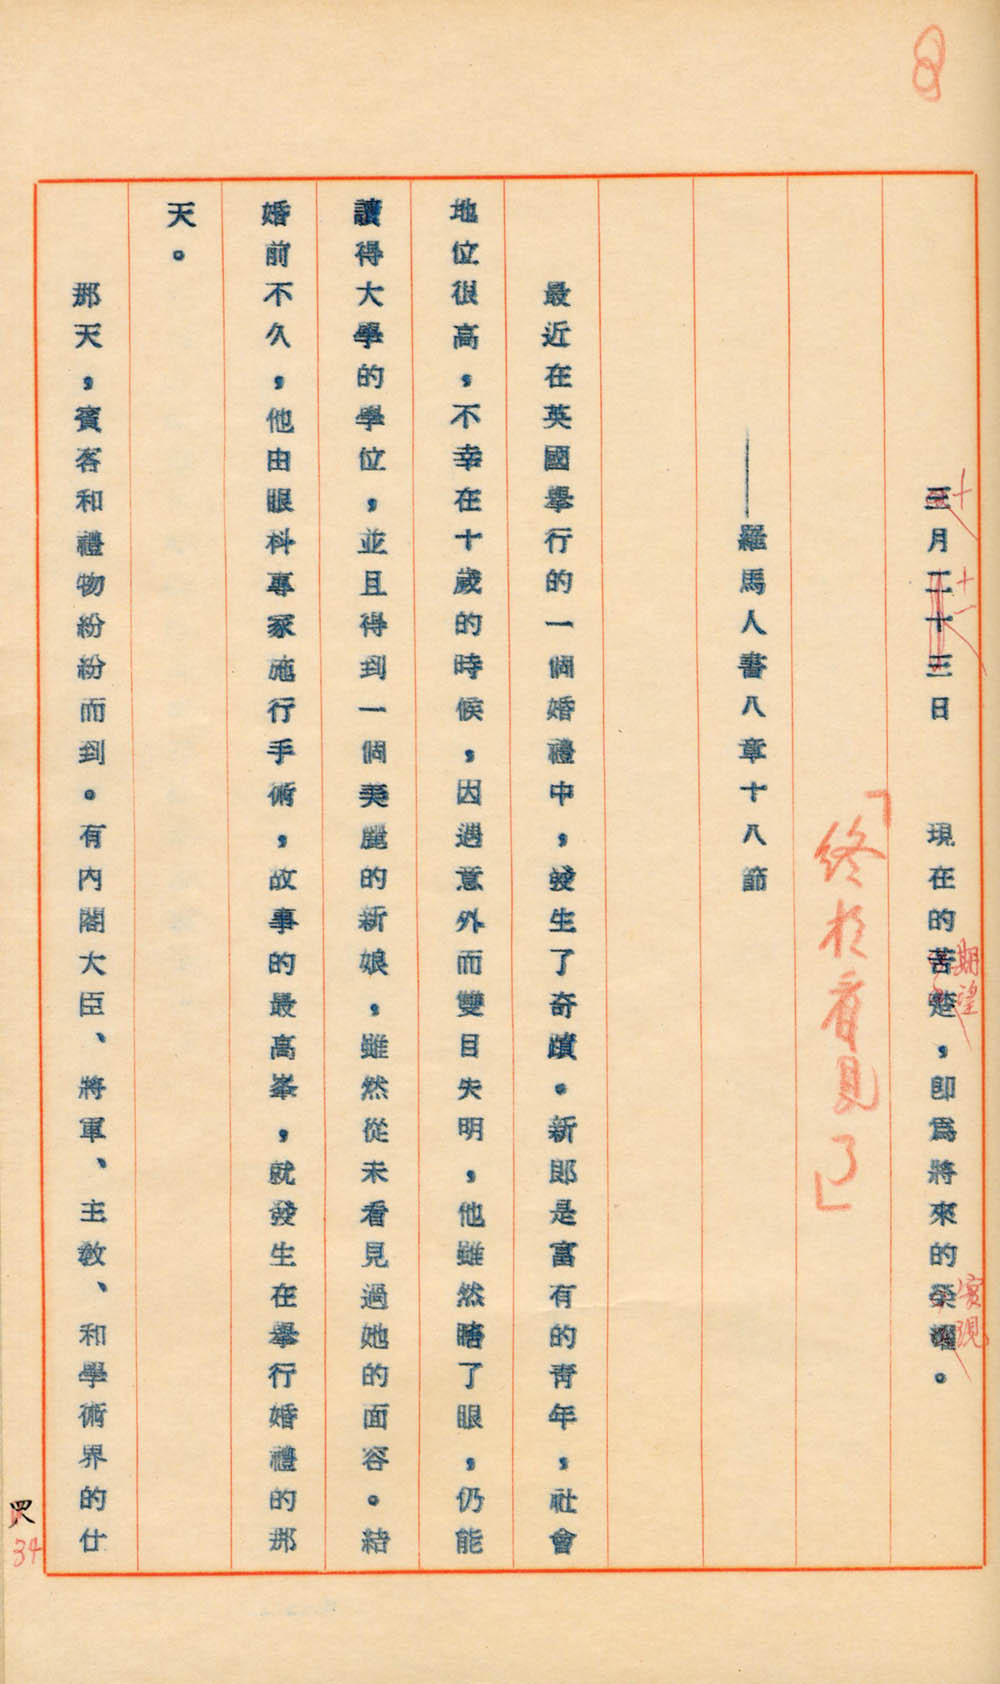 8
三月二十三日　現在的苦楚，即為將來的榮耀。
十
十一
期望
實現
「終於看見了」
——羅馬人書八章十八節
最近在英國舉行的一個婚禮中，發生了奇蹟。新郎是富有的青年，社會
地位很高，不幸在十歲的時候，因遇意外而雙目失明，他雖然瞎了眼，仍能
讀得大學的學位，並且得到一個美麗的新娘，雖然從未看見過她的面容。結
婚前不久，他由眼科專家施行手術，故事的最高峯，就發生在舉行婚禮的那
天。
那天，賓客和禮物紛紛而到。有內閣大臣、將軍、主教、和學術界的仕
34